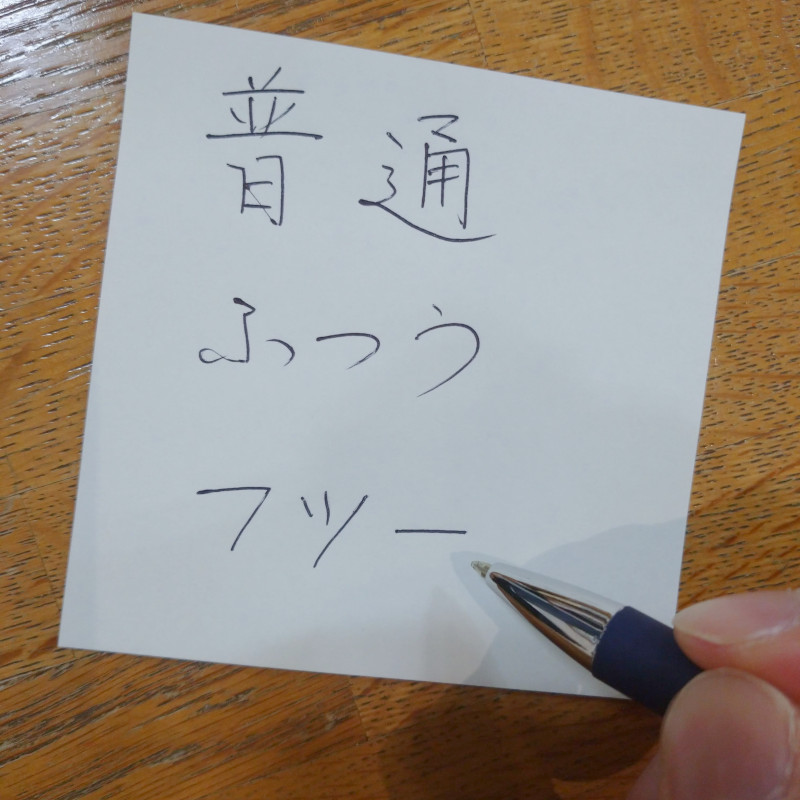 普通
ふつう
フツー